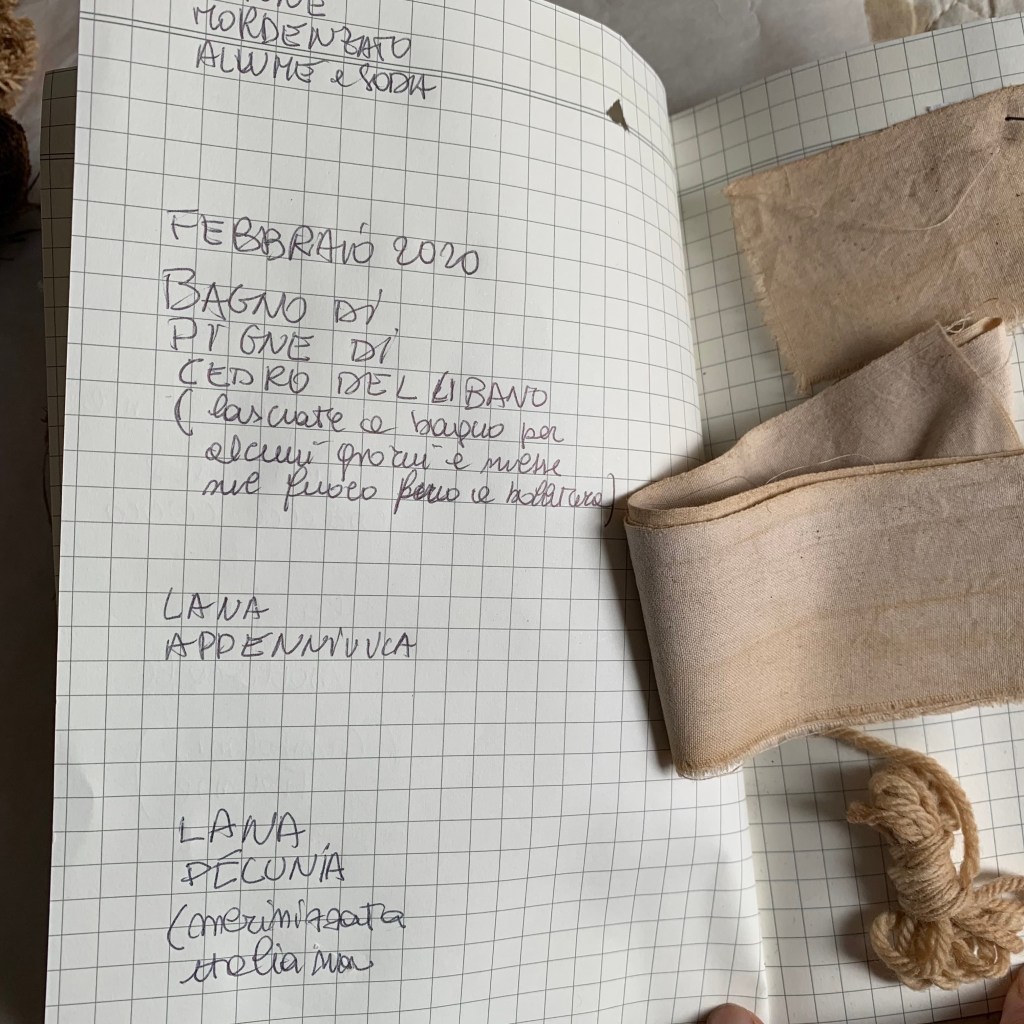 MORDENZATO
ALLUME e SODA
FEBBRAIO 2020
BAGNO DI
PIGNE DI
CEDRO DEL LIBANO
(lasciate a bagno per
alcuni giorni e messe
sul fuoco fino a bollitura)
LANA
APPENNINICA
LANA
PECUNIA
(merinizzata
italiana